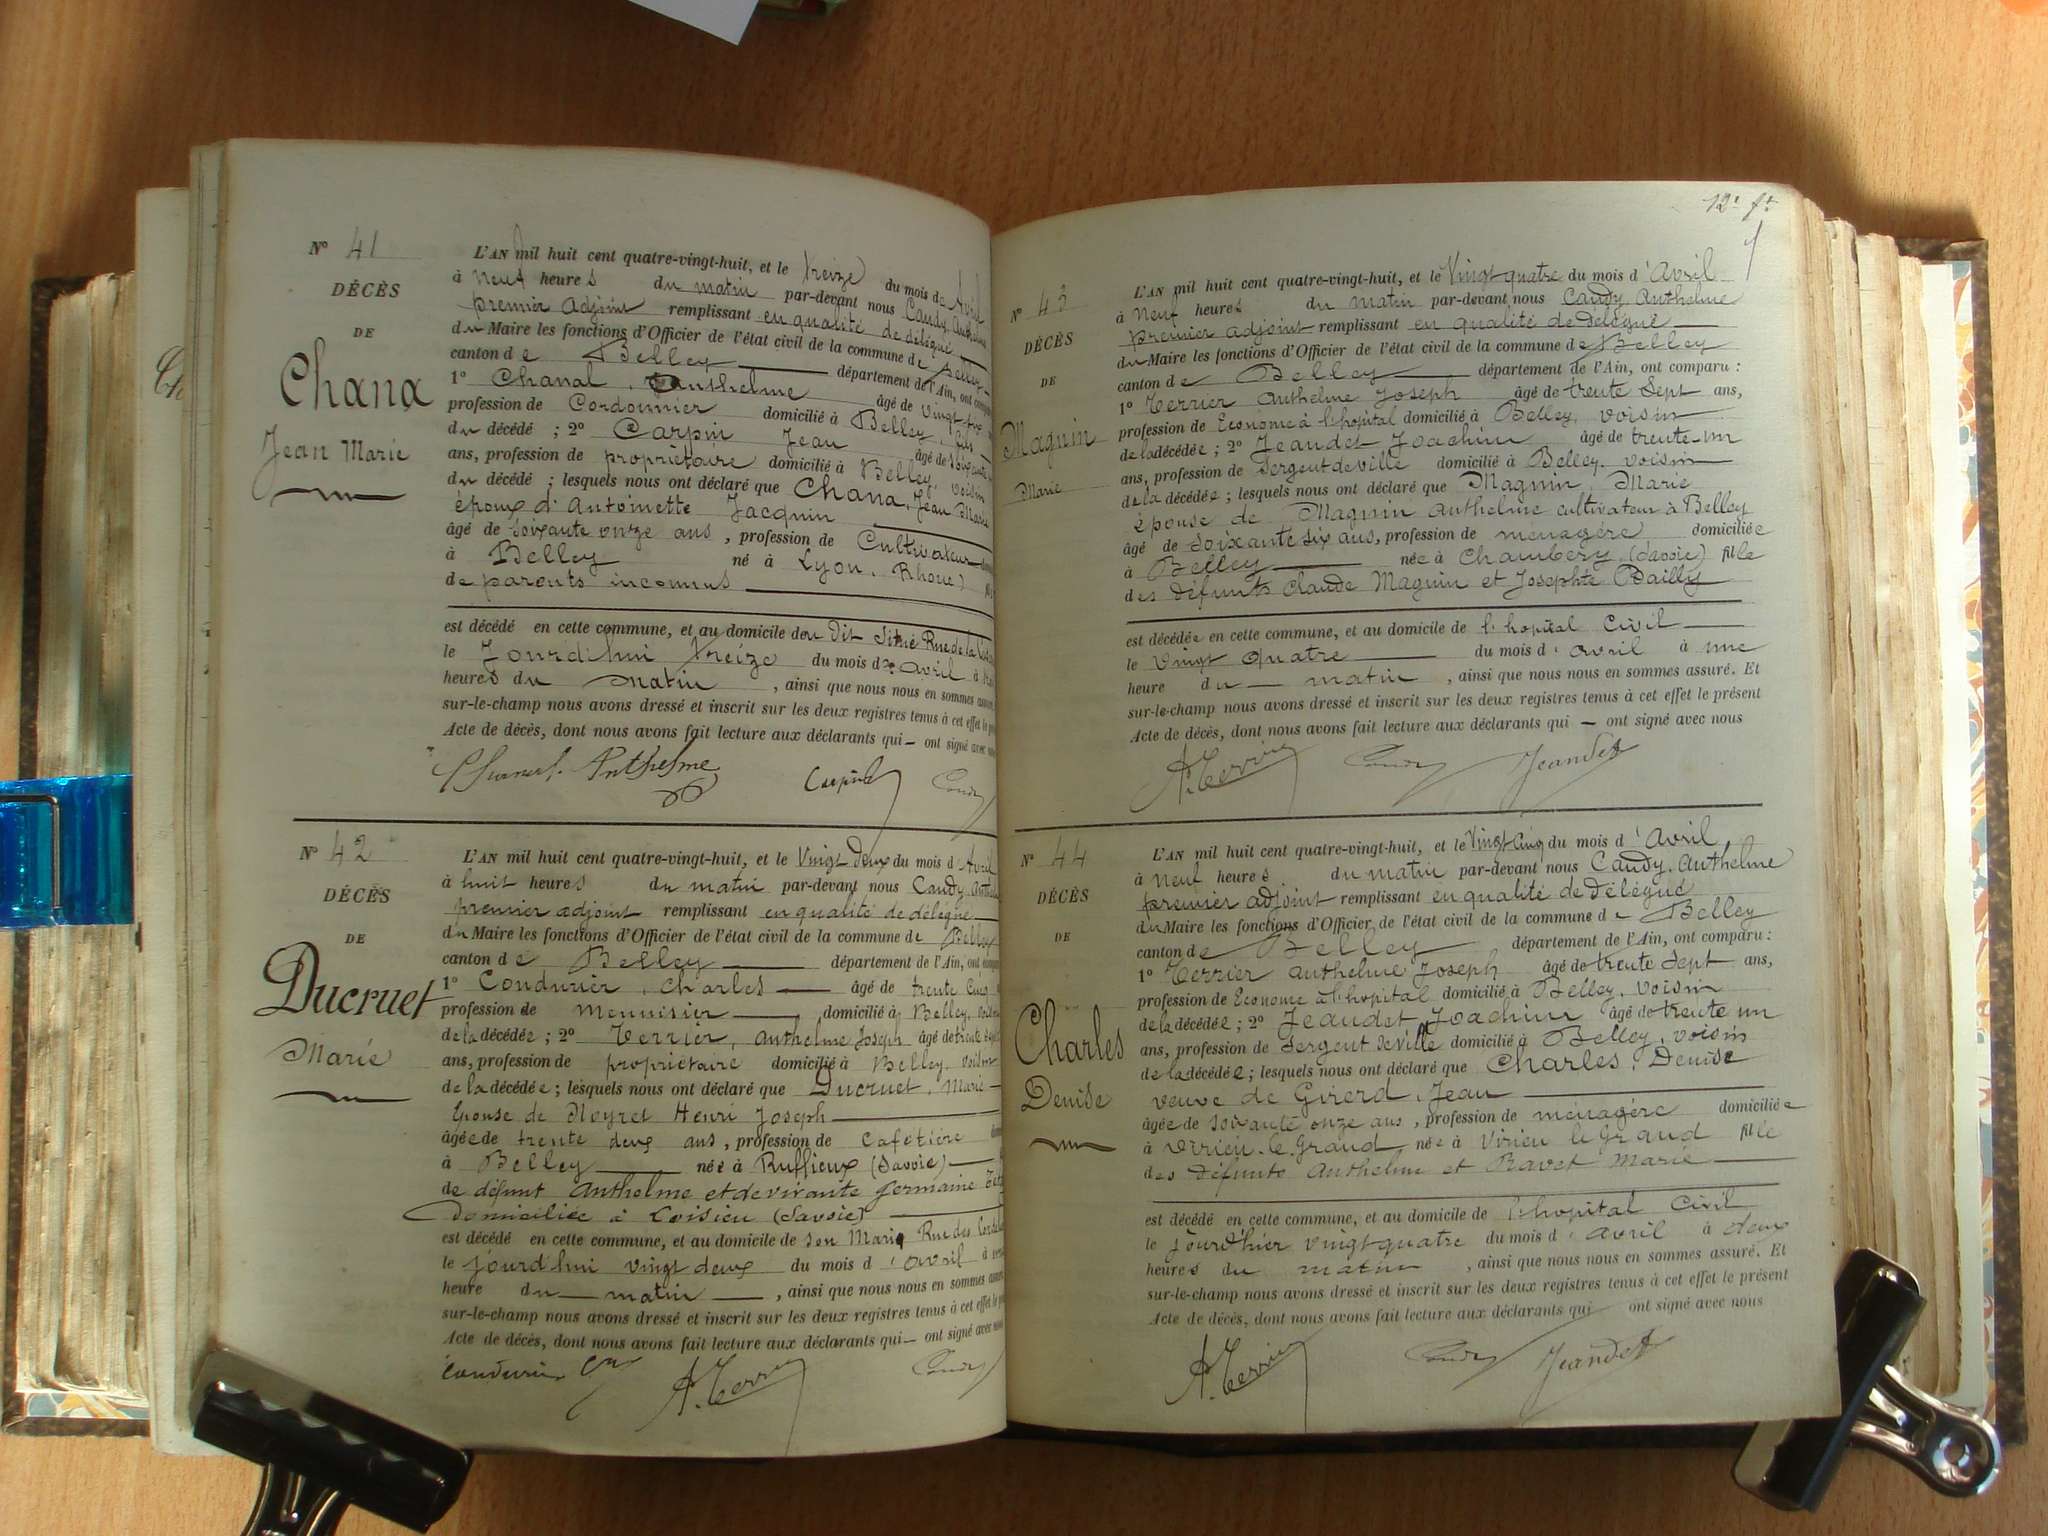 N° 41
DÉCÈS
DE
Chana
Jean Marie
L'AN mil huit cent quatre-vingt-huit, et le treize du mois de Avril
à Neuf heures du matin par-devant nous Candy, Anthelme
premier adjoint remplissant en qualité de délégué
du Maire les fonctions d'Officier de l'état civil de la commune de Belley
canton de Belley département de l'Ain, ont comparu
1° Chanal, Anthelme âgé de vingt
profession de Cordonnier domicilié à Belley, fils
du décédé ; 2° Carpin Jean âgé de soixante
ans, profession de propriétaire domicilié à Belley, voisin
du décédé ; lesquels nous ont déclaré que Chana, Jean Marie
époux d'Antoinette Jacquin
âgé de soixante onze ans, profession de Cultivateur
à Belley né à Lyon, Rhone)
de parents inconnus
est décédé en cette commune, et au domicile de du dit Situé Rue de la
le Jourd'hui treize du mois de avril à
heures du matin, ainsi que nous nous en sommes assuré
sur-le-champ nous avons dressé et inscrit sur les deux registres tenus à cet effet le
Acte de décès, dont nous avons fait lecture aux déclarants qui — ont signé avec nous
Anthelme Carpin Candy
N° 42
DÉCÈS
DE
Ducruet
Marie
L'AN mil huit cent quatre-vingt-huit, et le Vingt Deux du mois d'Avril
à huit heures du matin par-devant nous Candy, Anthelme
premier adjoint remplissant en qualité de délégué
du Maire les fonctions d'Officier de l'état civil de la commune de Belley
canton de Belley département de l'Ain, ont
1° Condurier, Charles âgé de trente cinq
profession de menuisier domicilié à Belley, voisin
de la décédée ; 2° Terrier, Anthelme Joseph âgé de trente sept
ans, profession de propriétaire domicilié à Belley, voisin
de la décédée ; lesquels nous ont déclaré que Ducruet, Marie
Epouse de Neyret Henri Joseph
âgée de trente deux ans, profession de Cafetière
à Belley née à Ruffieux (Savoie)
de défunt Anthelme et de vivante Germaine
domiciliée à Loisieu (Savoie)
est décédé en cette commune, et au domicile de son Mari, Rue des
le jourd'hui vingt deux du mois d'avril à
heure du matin, ainsi que nous nous en sommes assuré
sur-le-champ nous avons dressé et inscrit sur les deux registres tenus à cet effet le
Acte de décès, dont nous avons fait lecture aux déclarants qui — ont signé avec nous
Condurier A. Terrier Candy
12e ft
N° 43
DÉCÈS
DE
Magnin
Marie
L'AN mil huit cent quatre-vingt-huit, et le Vingt quatre du mois d'Avril
à Neuf heures du matin par-devant nous Candy, Anthelme
premier adjoint remplissant en qualité de délégué
du Maire les fonctions d'Officier de l'état civil de la commune de Belley
canton de Belley département de l'Ain, ont comparu :
1° Terrier Anthelme Joseph âgé de trente sept ans,
profession de Econome à l'hopital domicilié à Belley, voisin
de la décédée ; 2° Jeandet Joachim âgé de trente-un
ans, profession de Sergent de ville domicilié à Belley, voisin
de la décédée ; lesquels nous ont déclaré que Magnin, Marie
épouse de Magnin Anthelme cultivateur à Belley
âgé de soixante six ans, profession de ménagère domiciliée
à Belley née à Chambéry (Savoie) fille
des défunts Claude Magnin et Josephte Bailly
est décédée en cette commune, et au domicile de l'hopital Civil
le Vingt quatre du mois d'avril à une
heure du matin, ainsi que nous nous en sommes assuré. Et
sur-le-champ nous avons dressé et inscrit sur les deux registres tenus à cet effet le présent
Acte de décès, dont nous avons fait lecture aux déclarants qui — ont signé avec nous
A. Terrier Candy Jeandet
N° 44
DÉCÈS
DE
Charles
Denise
L'AN mil huit cent quatre-vingt-huit, et le Vingt Cinq du mois d'Avril
à neuf heures du matin par-devant nous Candy, Anthelme
premier adjoint remplissant en qualité de Délégué
du Maire les fonctions d'Officier de l'état civil de la commune de Belley
canton de Belley département de l'Ain, ont comparu :
1° Terrier Anthelme Joseph âgé de trente sept ans,
profession de Econome à l'hopital domicilié à Belley, voisin
de la décédée ; 2° Jeandet, Joachim âgé de trente un
ans, profession de Sergent de Ville domicilié à Belley, voisin
de la décédée ; lesquels nous ont déclaré que Charles, Denise
veuve de Girerd, Jean
âgée de soixante onze ans, profession de ménagère domiciliée
à Virieu-le-Grand née à Virieu le Grand fille
des défunts Anthelme et Ravet Marie
est décédé en cette commune, et au domicile de l'hopital Civil
le jourd'hier vingt quatre du mois d'avril à deux
heures du matin, ainsi que nous nous en sommes assuré. Et
sur-le-champ nous avons dressé et inscrit sur les deux registres tenus à cet effet le présent
Acte de décès, dont nous avons fait lecture aux déclarants qui ont signé avec nous
A. Terrier Candy Jeandet